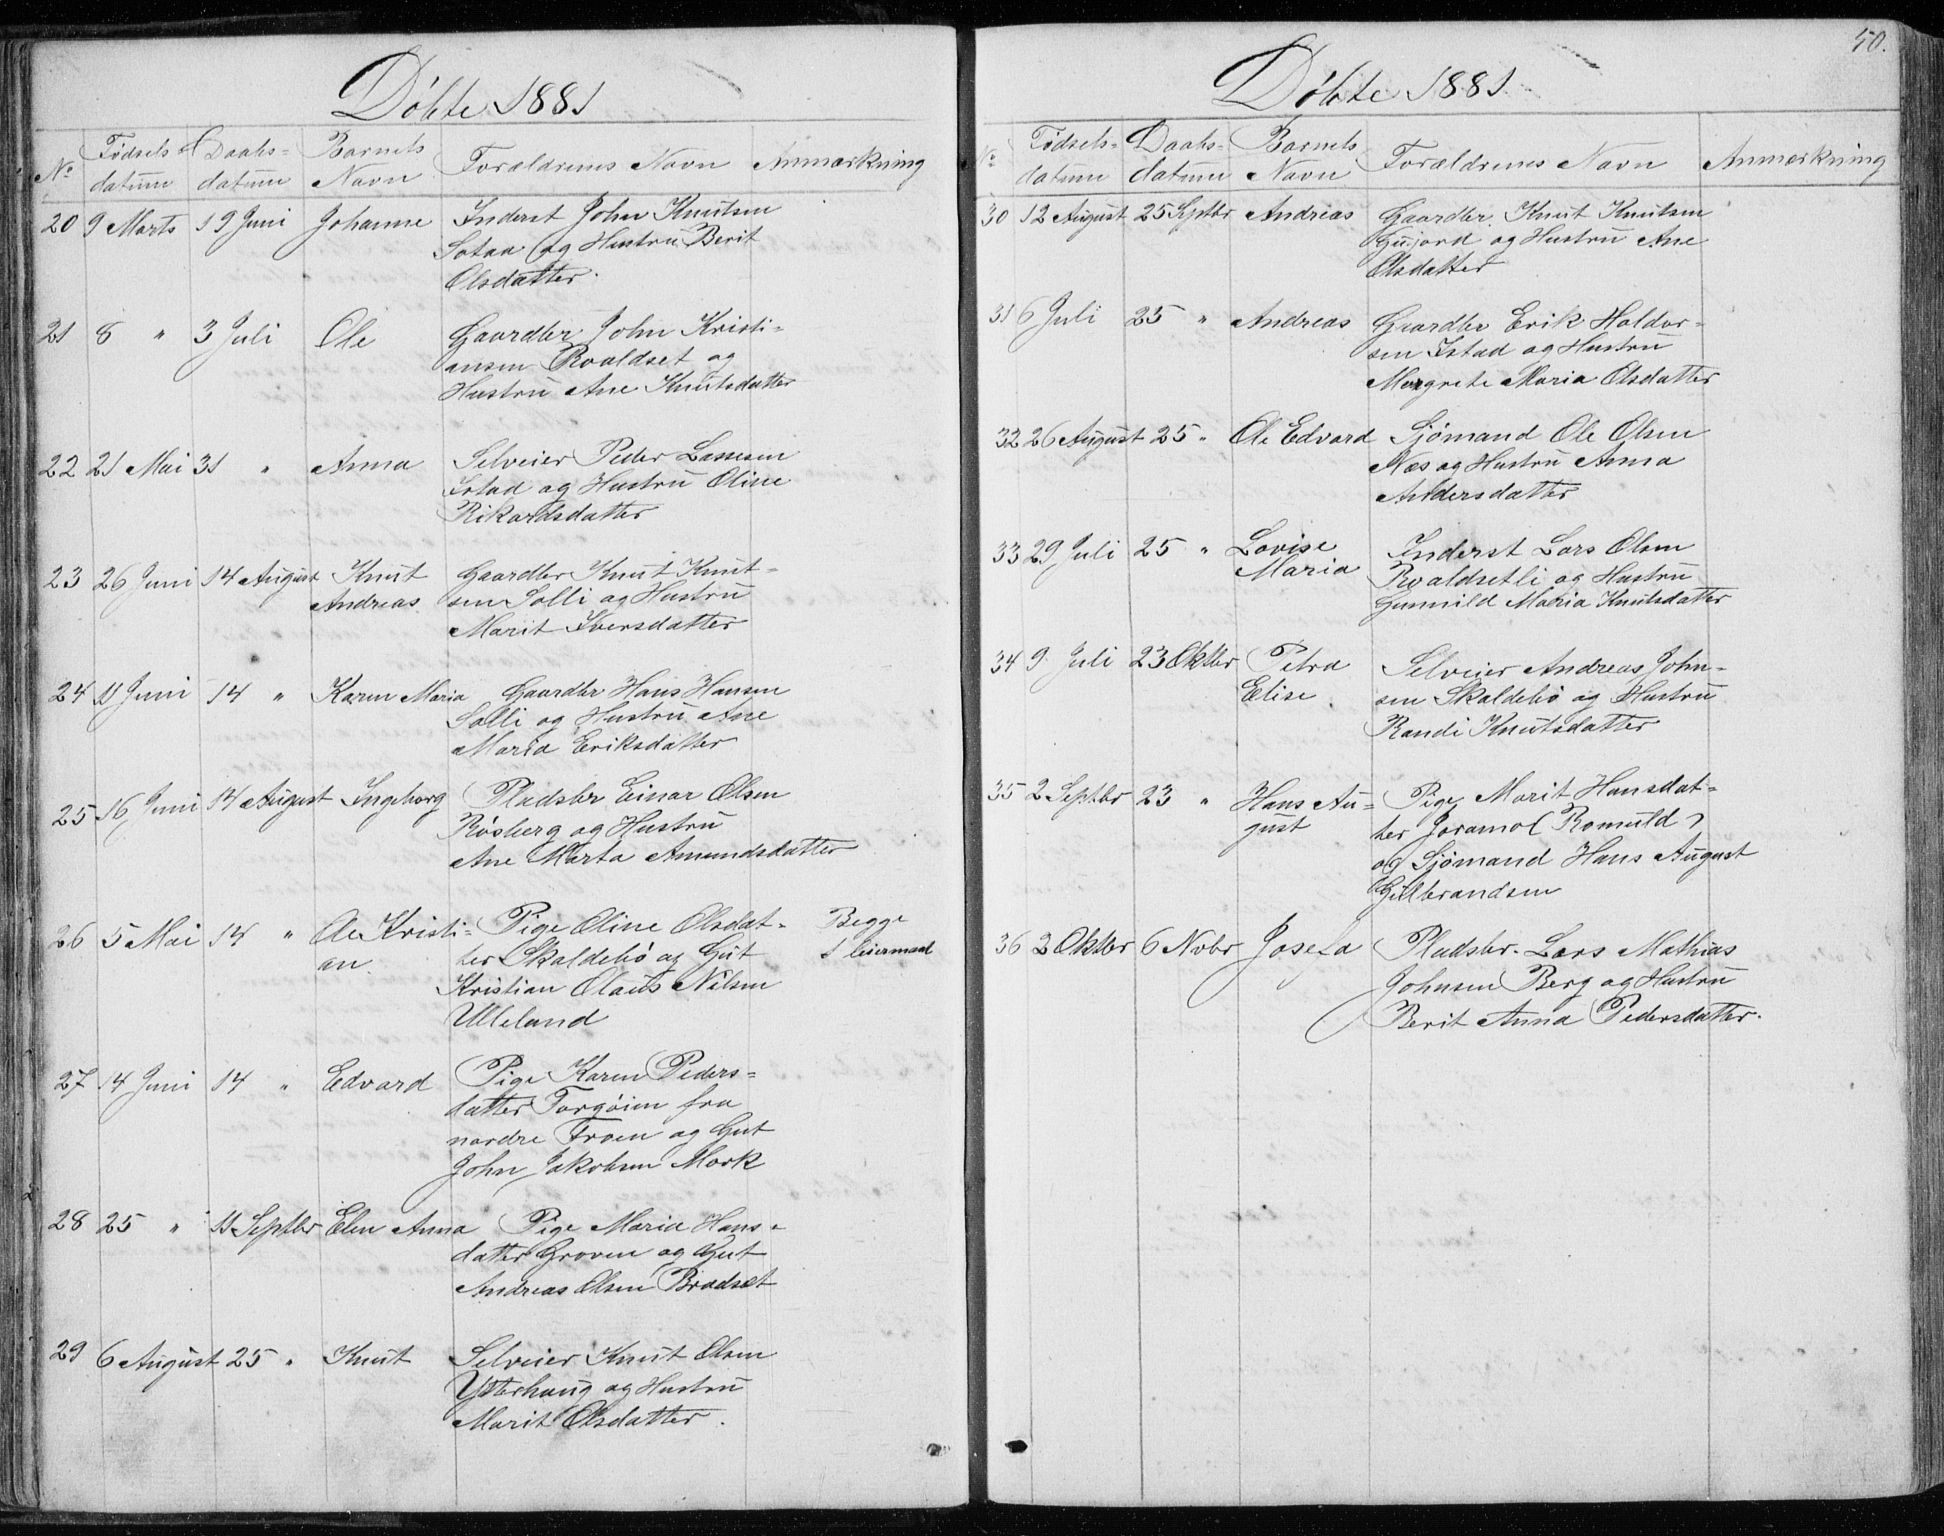 Döbte 1881
No Fødsels datum Daabs- datum Barnets Navn Forældrenes Navn Anmærkning
20 9 Marts 19 Juni Johanne Inderst John Knutsen
Sotaa og Hustru Berit
Olsdatter.
21 8 " 3 Juli Ole Gaardbr John Kristi-
ansen Roaldset og
Hustru Ane Knutsdatter
22 21 Mai 31 " Anna Selveier Peder Lassesen
Istad og Hustru Oline
Rikardsdatter
23 26 Juni 14 August Knut Gaardbr Knut Knut-
Andreas sen Solli og Hustru
Marit Iversdatter
24 11 Juni 14 " Karen Maria Gaardbr Hans Hansen
Solli og Hustru Ane
Maria Eriksdatter
25 16 Juni 14 August Ingeborg Pladsbr Einar Olsen
Røsberg og Hustru
Ane Marta Amundsdatter
26 5 Mai 14 " Ole Kristi- Pige Oline Olsdat- Begge
an. ter Skaldebø og Gut 1 leiermaal
Kristian Olaus Nilsen
Ulleland
27 14 Juni 14 " Edvard Pige Karen Peders-
datter Torgøien fra
nordre Froen og Gut
John Jakobsen Mork
28 25 " 11 Septbr Elen Anna Pige Maria Hans-
datter Groven og Gut
Andreas Olsen Bradset
29 6 August 25 " Knut Selveier Knut Olsen
Ytterhaug og Hustru
Marit Olsdatter.
50.
Döbte 1881
No Fødsels- datum Daabs- datum Barnets Navn Forældrenes Navn Anmærkning
30 12 August 25 Septbr Andreas Gaardbr Knut Knutsen
Gujord og Hustru Ane
Olsdatter
31 6 Juli 25 " Andreas Gaardbr Erik Haldor-
sen Istad og Hustru
Margrete Maria Olsdatter
32 26 August 25 " Ole Edvard Sjömand Ole Olsen
Næs og Hustru Anna
Andersdatter
33 29 Juli 25 " Lovise Inderst Lars Olsen
Maria Roaldsetli og Hustru
Gunnild Maria Knutsdatter
34 9 Juli 23 Oktbr Petra Selveier Andreas John-
Elise sen Skaldebø og Hustru
Randi Knutsdatter
35 2 Septbr 23 " Hans Au- Pige Marit Hansdat-
gust ter Joramo (Romuld)
og Sjömand Hans August
Gulbrandsen
36 2 Oktbr 6 Nvbr Josefa Pladsbr. Lars Mathias
Johnsen Berg og Hustru
Berit Anna Pedersdatter.